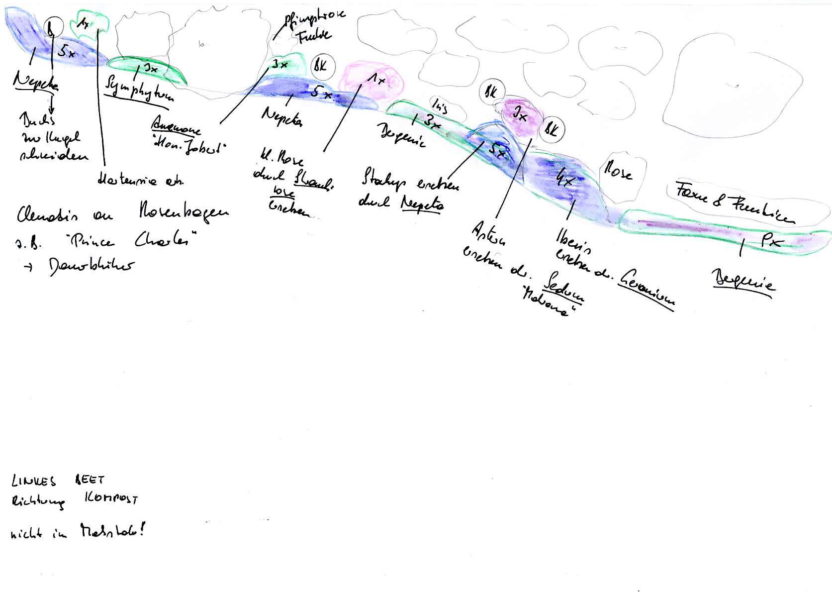 B
1x
5x
Nepeta
Buchs
zur Kugel
schneiden
Hortensie
3x
Symphytum
Pfingstrose
3x
BK
5x
1x
Anemone
"Hon. Jobert"
Nepeta
kl. Rose
durch Strauch-
rose
ersetzen
Clematis an Rosenbogen
z.B. "Prince Charles"
→ Dauerblüher
Iris
3x
Bergenie
BK
3x
BK
5x
4x
Stachys ersetzen
durch Nepeta
Astern
ersetzen du. Sedum
"Matrona"
Iberis
ersetzen du. Geranium
Rose
Farne &
9x
Bergenie
LINKES BEET
Richtung KOMPOST
nicht im Maßstab!